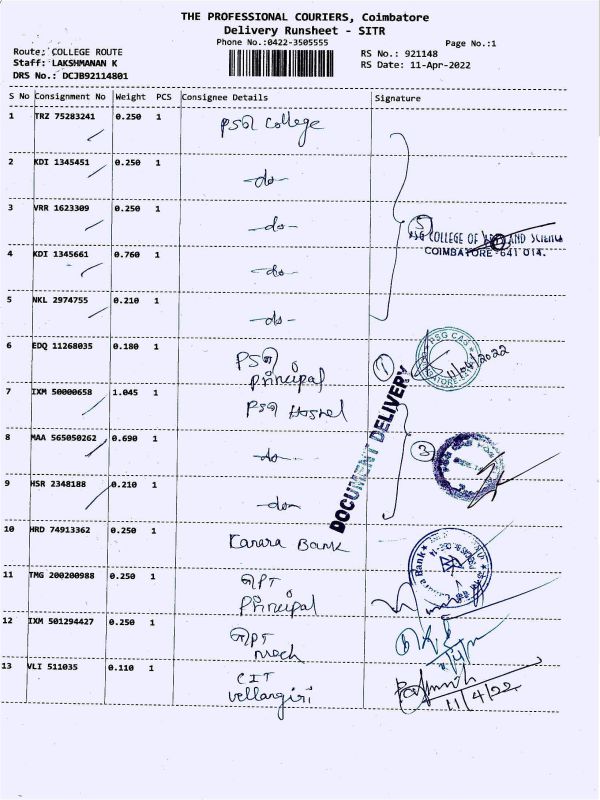 THE PROFESSIONAL COURIERS, Coimbatore
Delivery Runsheet - SITR
Phone No.:0422-3505555
Page No.:1
Route: COLLEGE ROUTE
RS No.: 921148
Staff: LAKSHMANAN K
RS Date: 11-Apr-2022
DRS No.: DCJB92114801
S No Consignment No Weight PCS Consignee Details Signature
1 TRZ 75283241 0.250 1 PSG College
2 KDI 1345451 0.250 1 -do-
3 VRR 1623309 0.250 1 -do-
5
PSG COLLEGE OF ARTS AND SCIENCE
COIMBATORE-641 014.
4 KDI 1345661 0.760 1 -do-
5 NKL 2974755 0.210 1 -do-
6 EDQ 11268035 0.180 1 PSG
Principal
1
PSG CAS
11/04/2022
7 IXM 50000658 1.045 1 PSG Hostel
DOCUMENT DELIVERY
8 MAA 565050262 0.690 1 -do-
3
9 HSR 2348188 0.210 1 -do-
10 HRD 74913362 0.250 1 Canara Bank
Canara Bank
11 TMG 200200988 0.250 1 GPT
Principal
12 IXM 501294427 0.250 1 GPT
Mech
13 VLI 511035 0.110 1 CIT
Vellangiri
11/4/22